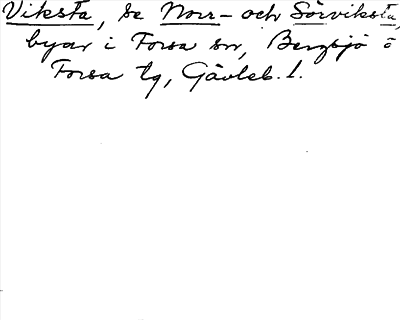 Viksta, se Norr- och Sörviksta,
byar i Forsa sn, Bergsjö o
Forsa tg, Gävleb. l.